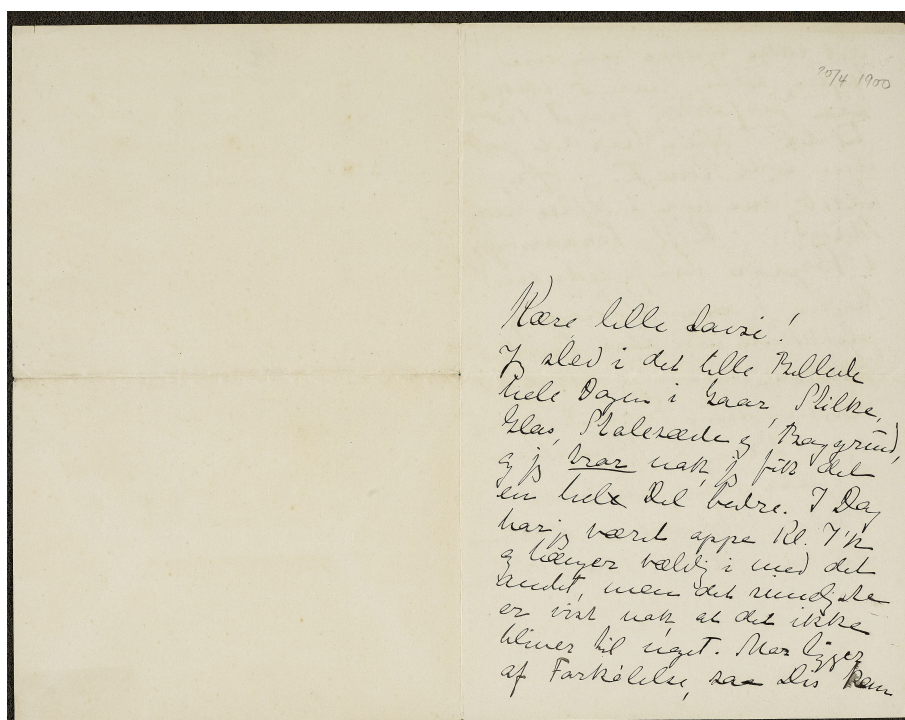 20/4 1900
Kære lille Lavsi!
Jeg sled i det lille Billede
hele Dagen i Gaar, Stilke,
Glas, Stolesæde og Baggrund,
og jeg tror nok jeg fik det
en hel Del bedre. I Dag
har jeg været oppe Kl. 7½
og hænger vældig i med det
andet, men det rimeligste
er vist nok at det ikke
bliver til noget. Mor ligger
af Forkølelse, saa Dis kom